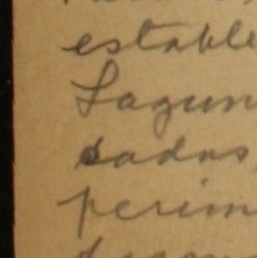 estable
Lagun
sadas,
perim